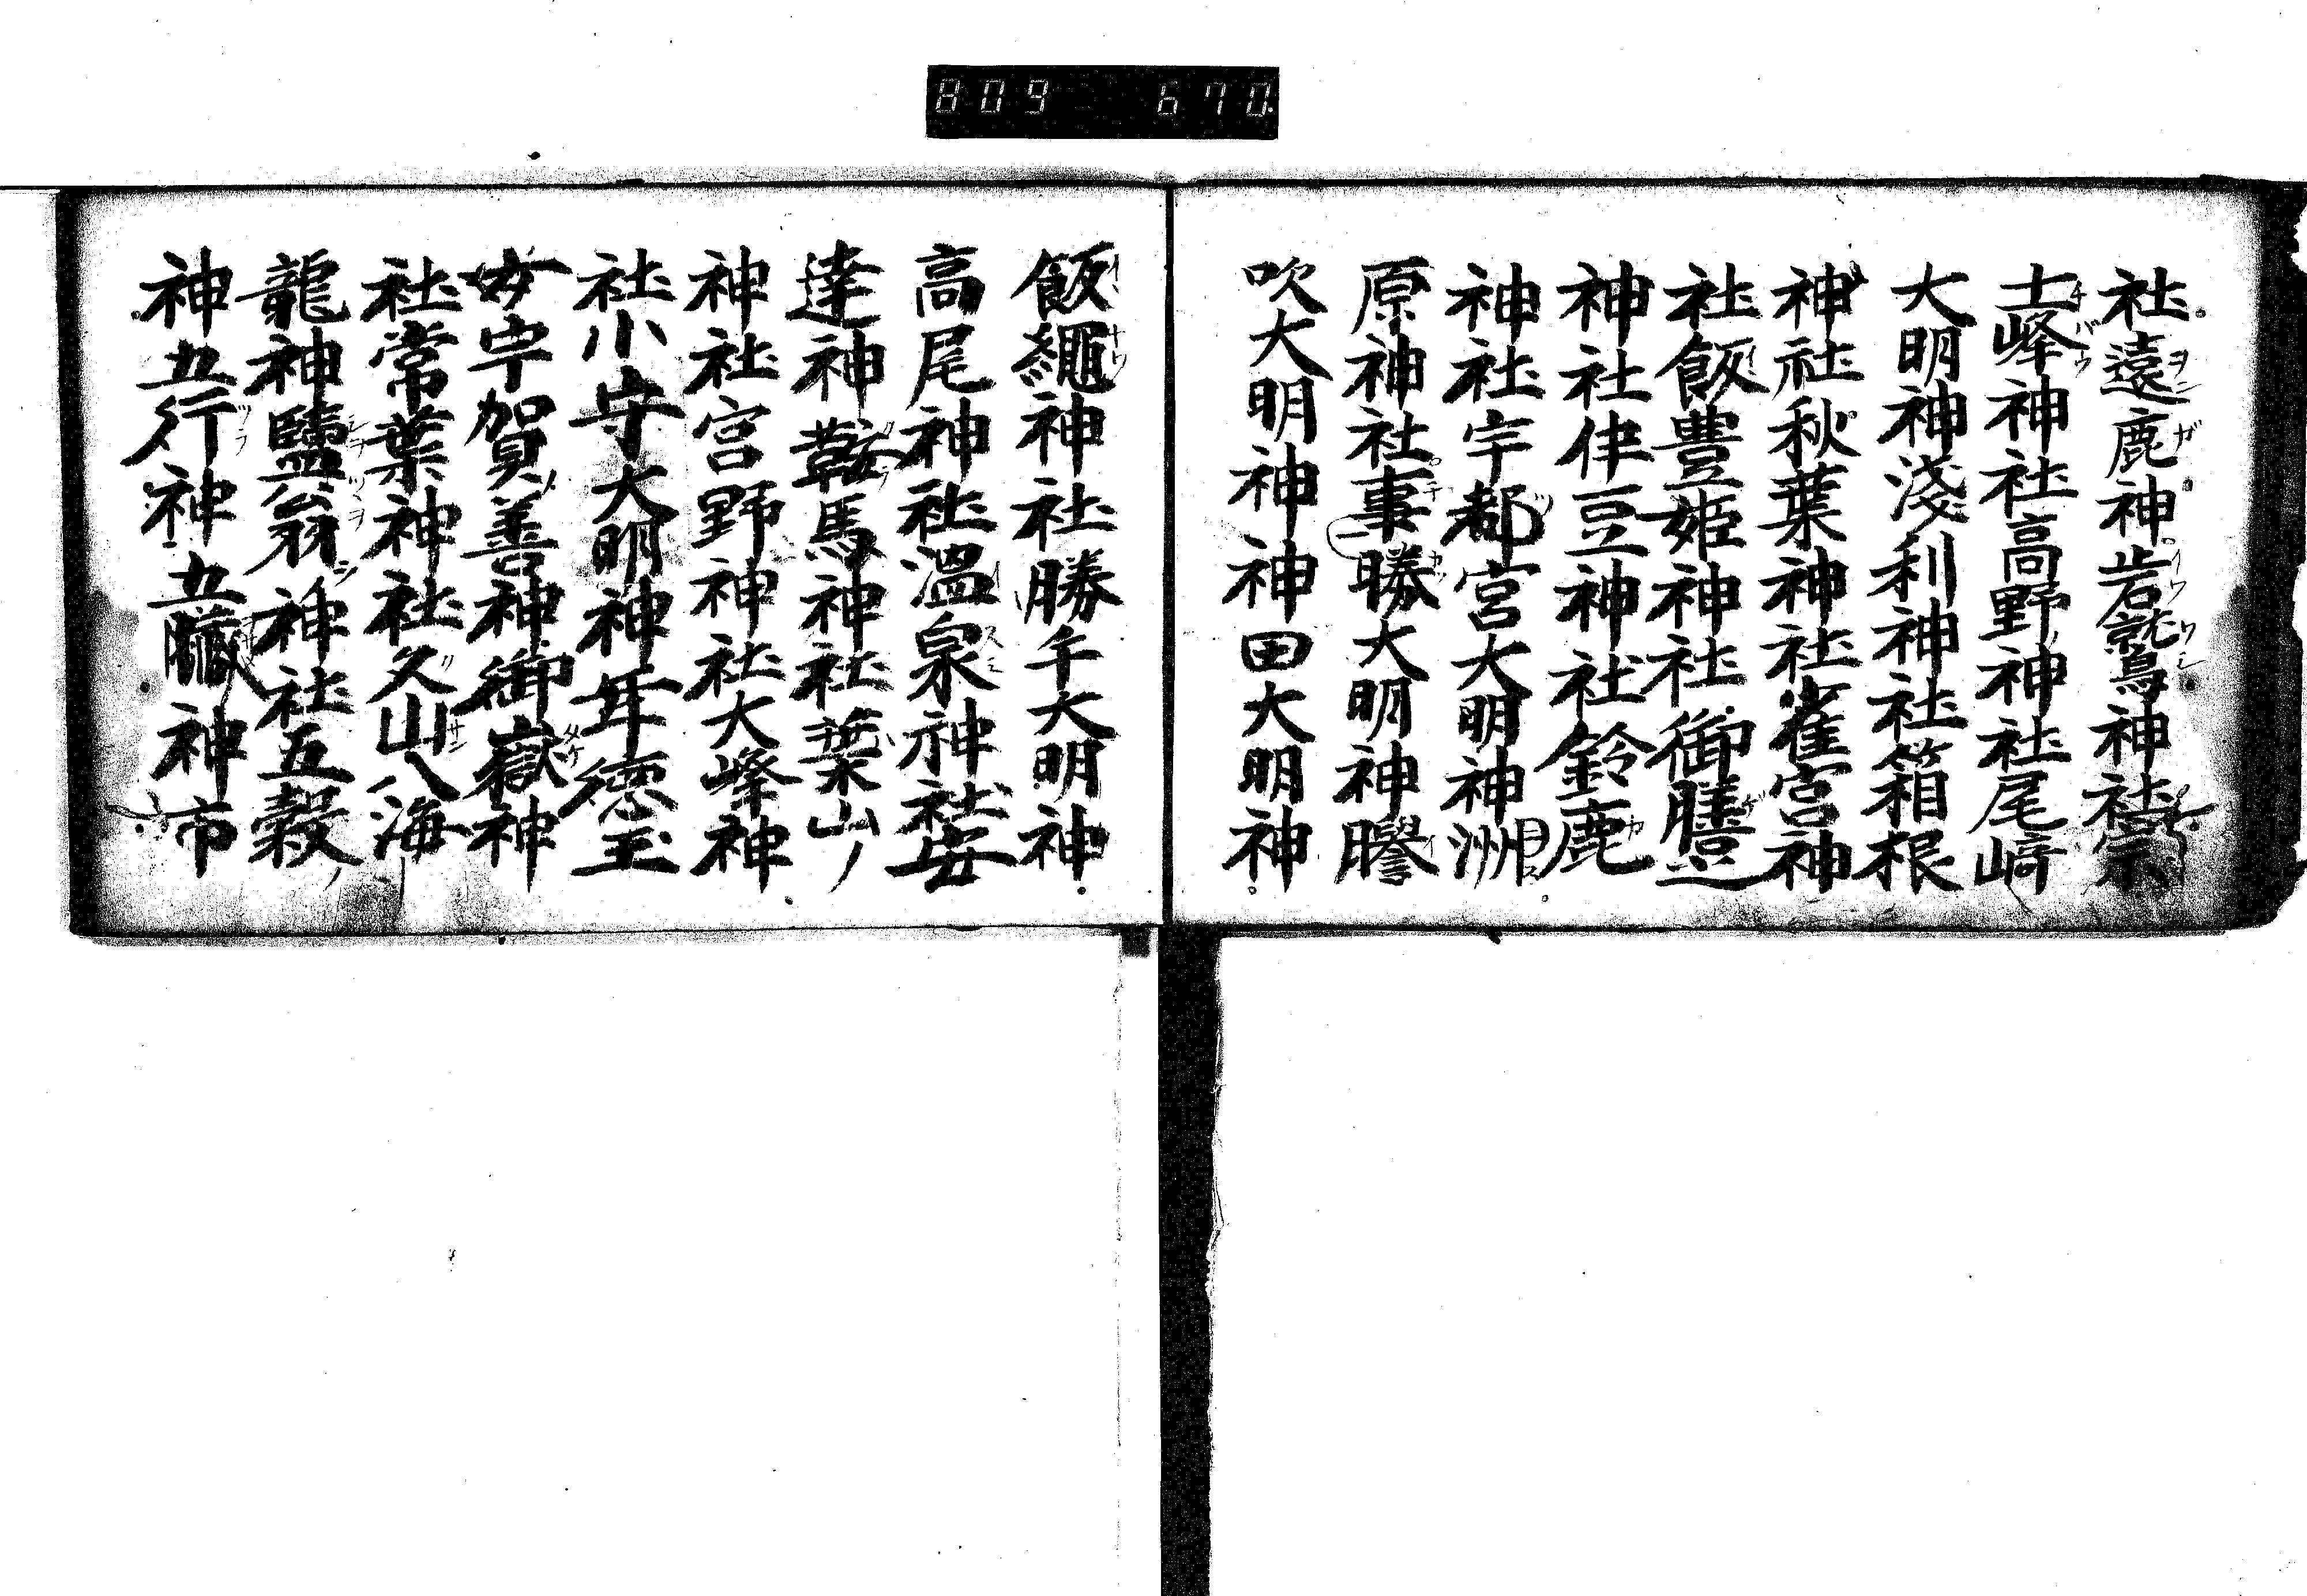 809 670
社遠鹿神岩鷲神社宗
士峰神社高野神社尾﨑
大明神淺利神社箱根
神社秋葉神社雀宮神
社飯豊姫神社御膳
神社伊豆神社鈴鹿
神社宇都宮大明神洲
原神社事勝大明神膠
吹大明神神田大明神
飯繩神社勝手大明神
高尾神社溫泉神社安
達神鞍馬神社葉山ノ
神社宮野神社大峰神
社小守大明神年德玉
女宇賀善神御嶽神
社常葉神社久山八海
龍神鹽翁神社五穀ノ
神五行神五臓神市